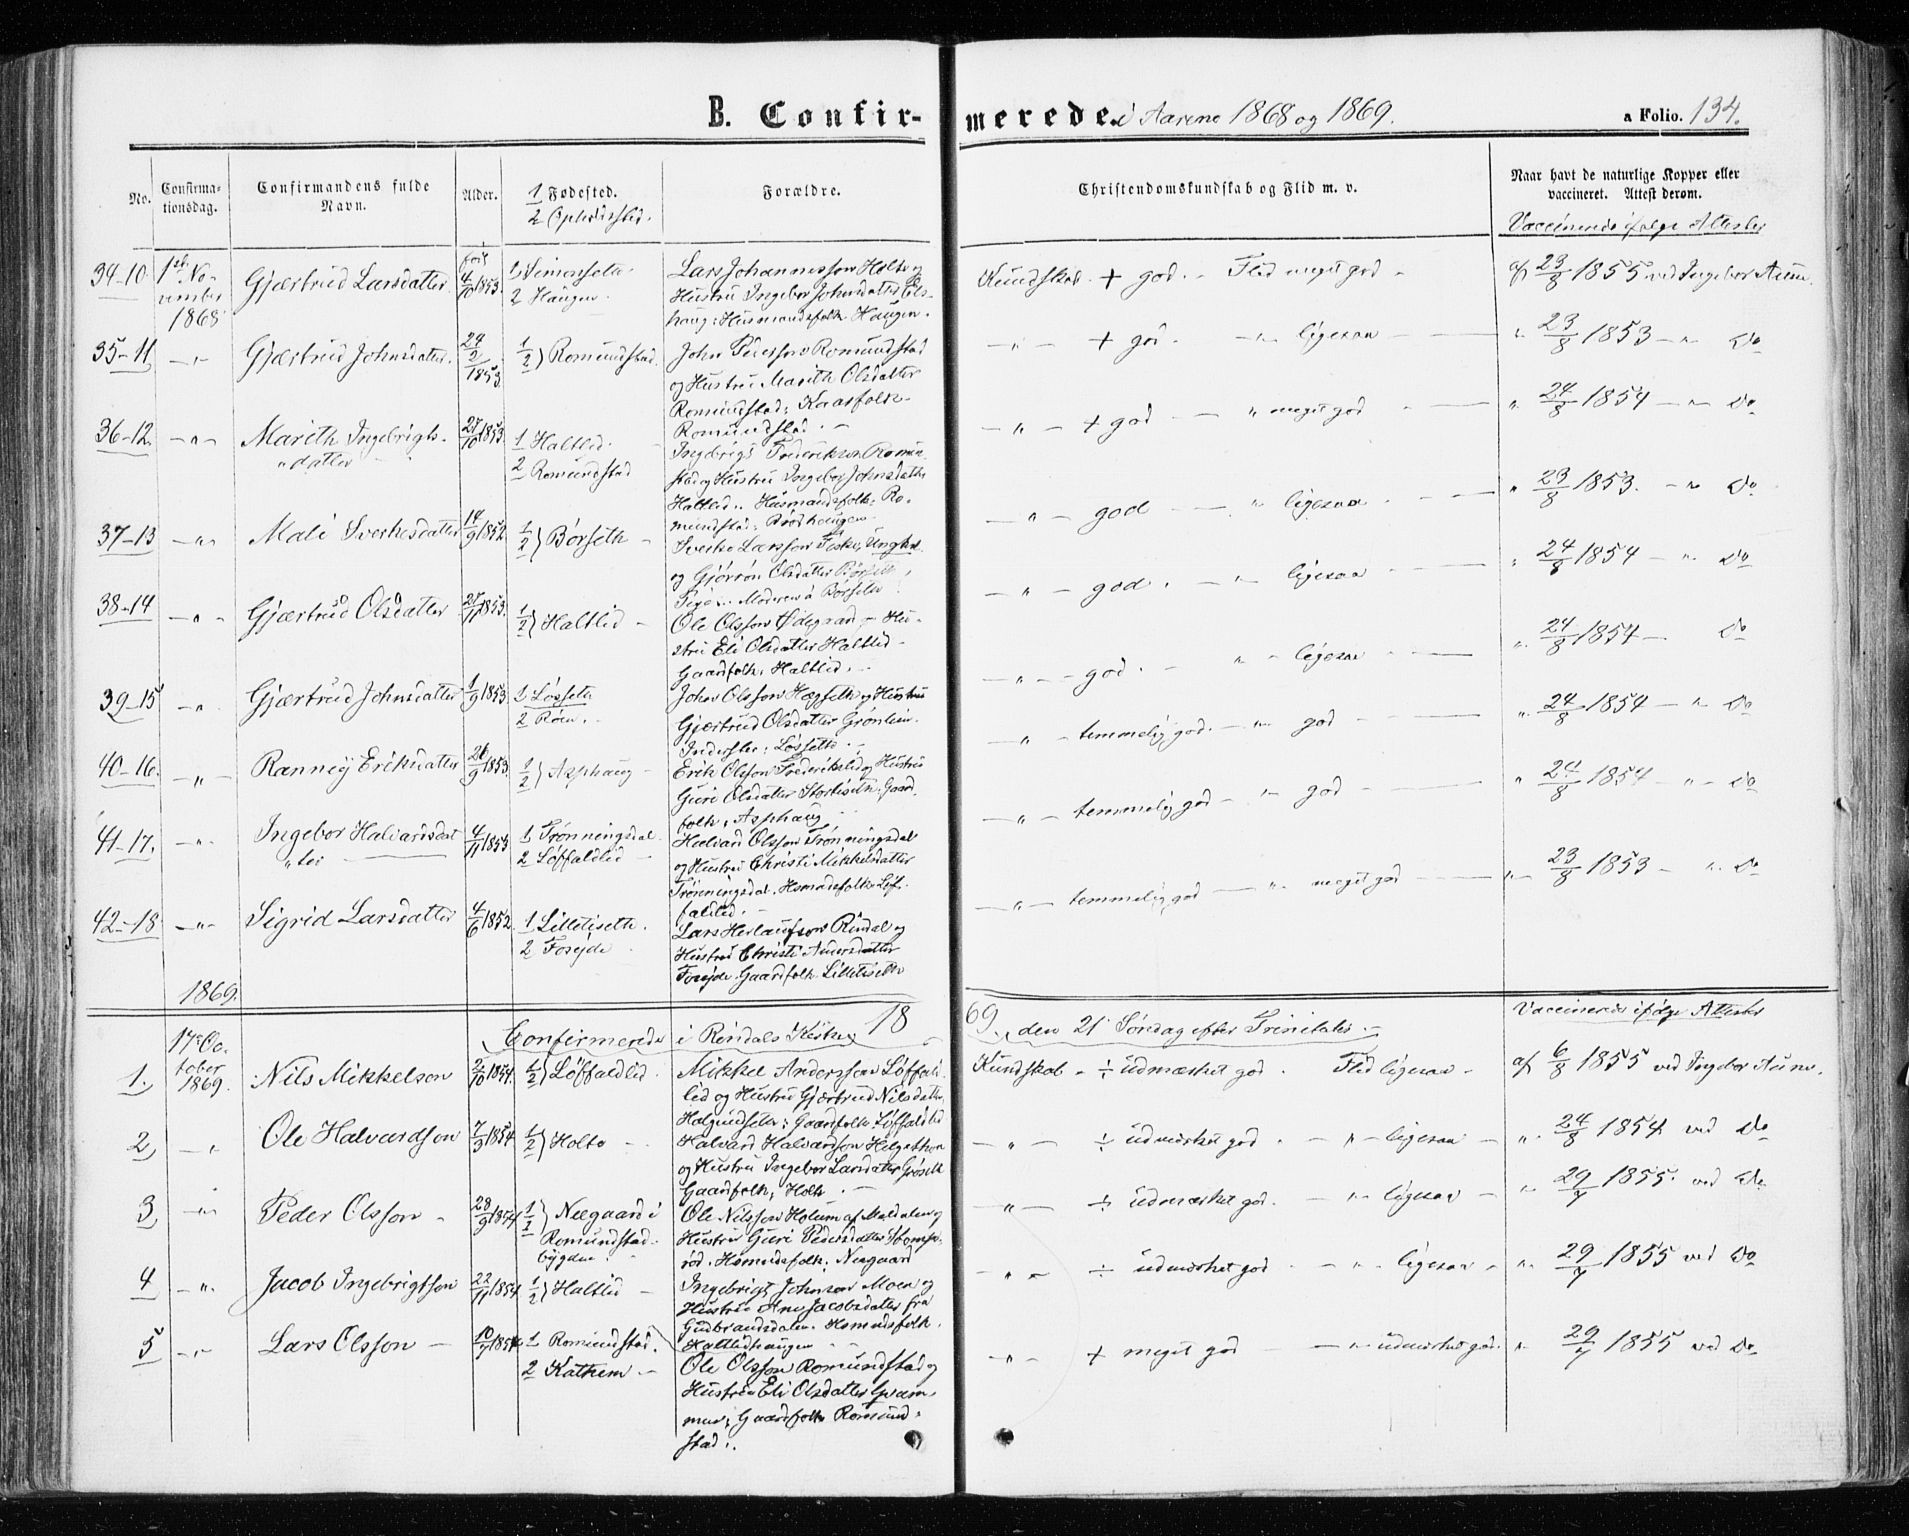 B. Confir-
merede. i Aarene 1868 og 1869.
a Folio. 134.
No.
Confirma-
tionsdag.
Confirmandens fulde
Navn.
Alder.
1 Fødested.
2 Opholdssted.
Forældre.
Christendomskundskab og Flid m. v.
Naar havt de naturlige Kopper eller
vaccineret. Attest derom.
Vaccinerede ifølge Attester
34-10
1ste No-
vember
1868
Gjærtrud Larsdatter
4/10 1853.
1 Simonsete
2 Haugen
Lars Johannesson Holte og
Hustru Ingebor Johnsdatter
haug; Husmandsfolk Haugen.
Kundskab + god - Flid meget god -
af 23/8 1855 ved Ingebor Aune.
35-11
Gjærtrud Johnsdatter.
24/2 1853.
1/2 } Romundstad
John Pedersson Romundstad
og Hustru Marith Olsdatter
Romundstad; Kaarfolk
Romundstad.
-"- + god. -"- ligesaa
" 23/8 1853 -"- Do
36-12.
Marith Ingebrigts-
"datter
1853.
1 Haltlid
2 Romundstad
Ingebrigt Frederiksen Romun-
stad og Hustru Ingebor Johnsdatter
Haltlid. Husmandsfolk, Ro-
mundstad;
-"- + god - " meget god
" 24/8 1854 -"- Do
37-13
Mali Sverkesdatter
14/9 1852
1/2 } Børseth
Sverke Larsson Fiske, Ungkarl
og Gjørrøn Olsdatter Børseth
Pige. Moderen i Børseth
-"- god - " ligesaa
" 23/8 1853. -"- Do
38-14
Gjærtrud Olsdatter
1853.
1/2 } Haltlid
Ole Olsson Ødegaard - Hu-
stru Eli Olsdatter Haltlid
Gaardfolk, Haltlid.
-"- god. - ligesaa
" 24/8 1854 - ". Do
39-15
Gjærtrud Johnsdatter
1/9 1853.
1 Løsseta
2 Røen.
John Olsson Hægseth og Hustru
Gjærtrud Olsdatter Grønlien
Inderster; Løssette.
-"- god. - ligesaa
" 24/8 1854 - Do
40-16.
Rannei Eriksdatter
26/9 1853.
1/2 } Asphaug
Erik Olsson Frederikslid og Hustru
Guri Olsdatter Stortiseth. Gaard-
folk, Asphaug
-"- temmelig god. -"- god
" 24/8 1854 -"- Do
41-17.
Ingebor Halvarsdat
"ter
4/11 1853
1 Trønningsdal
2 Løffaldlid
Halvard Olsson Trønningsdal
og Hustru Christi Mikkelsdatter
Trønningsdal. Hsmandsfolk Løf-
faldlid.
-"- temmelig god - " - god
" 24/8 1854 -"- Do
42-18
Sigrid Larsdatter
4/6 1852
1 Lilletiseth.
2 Foseide
Lars Herlaugson Rindal og
Hustru Christi Andersdatter
Foseide. Gaardfolk. Lilletiseth
-"- temmelig god - " meget god
" 23/8 1853 - ". Do
1869.
Confirmerede i Rindals Kirke 1869. den 21 Søndag efter Trinitatis.
Vaccinerede ifølge Attester
1.
17 Oc-
tober
1869.
Nils Mikkelson
2/10 1854.
1/2 } Løffaldlid
Mikkel Andersson Løffald-
lid og Hustru Gjærtrud Nilsdatter
Gaardfolk Løffaldlid
Kundskab - ÷ udmærket god. Flid ligesaa -
af 6/8 1855 ved Ingebor Aune.
2,
Ole Halvardson
7/3 1854.
1/2 } Holte
Halvard Halvardsson Helgethon
og Hustru Ingebor Larsdatter Grøseth
Gaardfolk, Holte.
-"- ÷ udmærket god. -"- ligesaa
" 24/8 1854 ved Do
3,
Peder Olsson
28/9 1854
1/2 } Neegaard i
Romundstad-
bygden.
Ole Nilsson Holum af Meldalen og
Hustru Guri Pedersdatter
Hsmandsfolk, Neegaard
-"- ÷ udmærket god. -"- ligesaa
" 29/7 1855. ved Do
4
Jacob Ingebrigtson
22/11 1854
1/2 } Haltlid
Ingebrigt Johnson Moen og
Hustru Ane Jacobsdatter fra
Gudbrandsdalen. Hsmandsfolk.
Haltlidhaugen
-"- ÷ udmærket god -"- ligesaa
" 29/7 1855 ved Do
5
Lars Olsson
10/7 1854
1 Romundstad.
2 Kathem
Ole Olsson Romundstad og
Hustru Eli Olsdatter Gram-
mer; Gaardfolk Romund-
stad.
-"- + meget god -"- udmærket god.
" 29/7 1855 ved Do